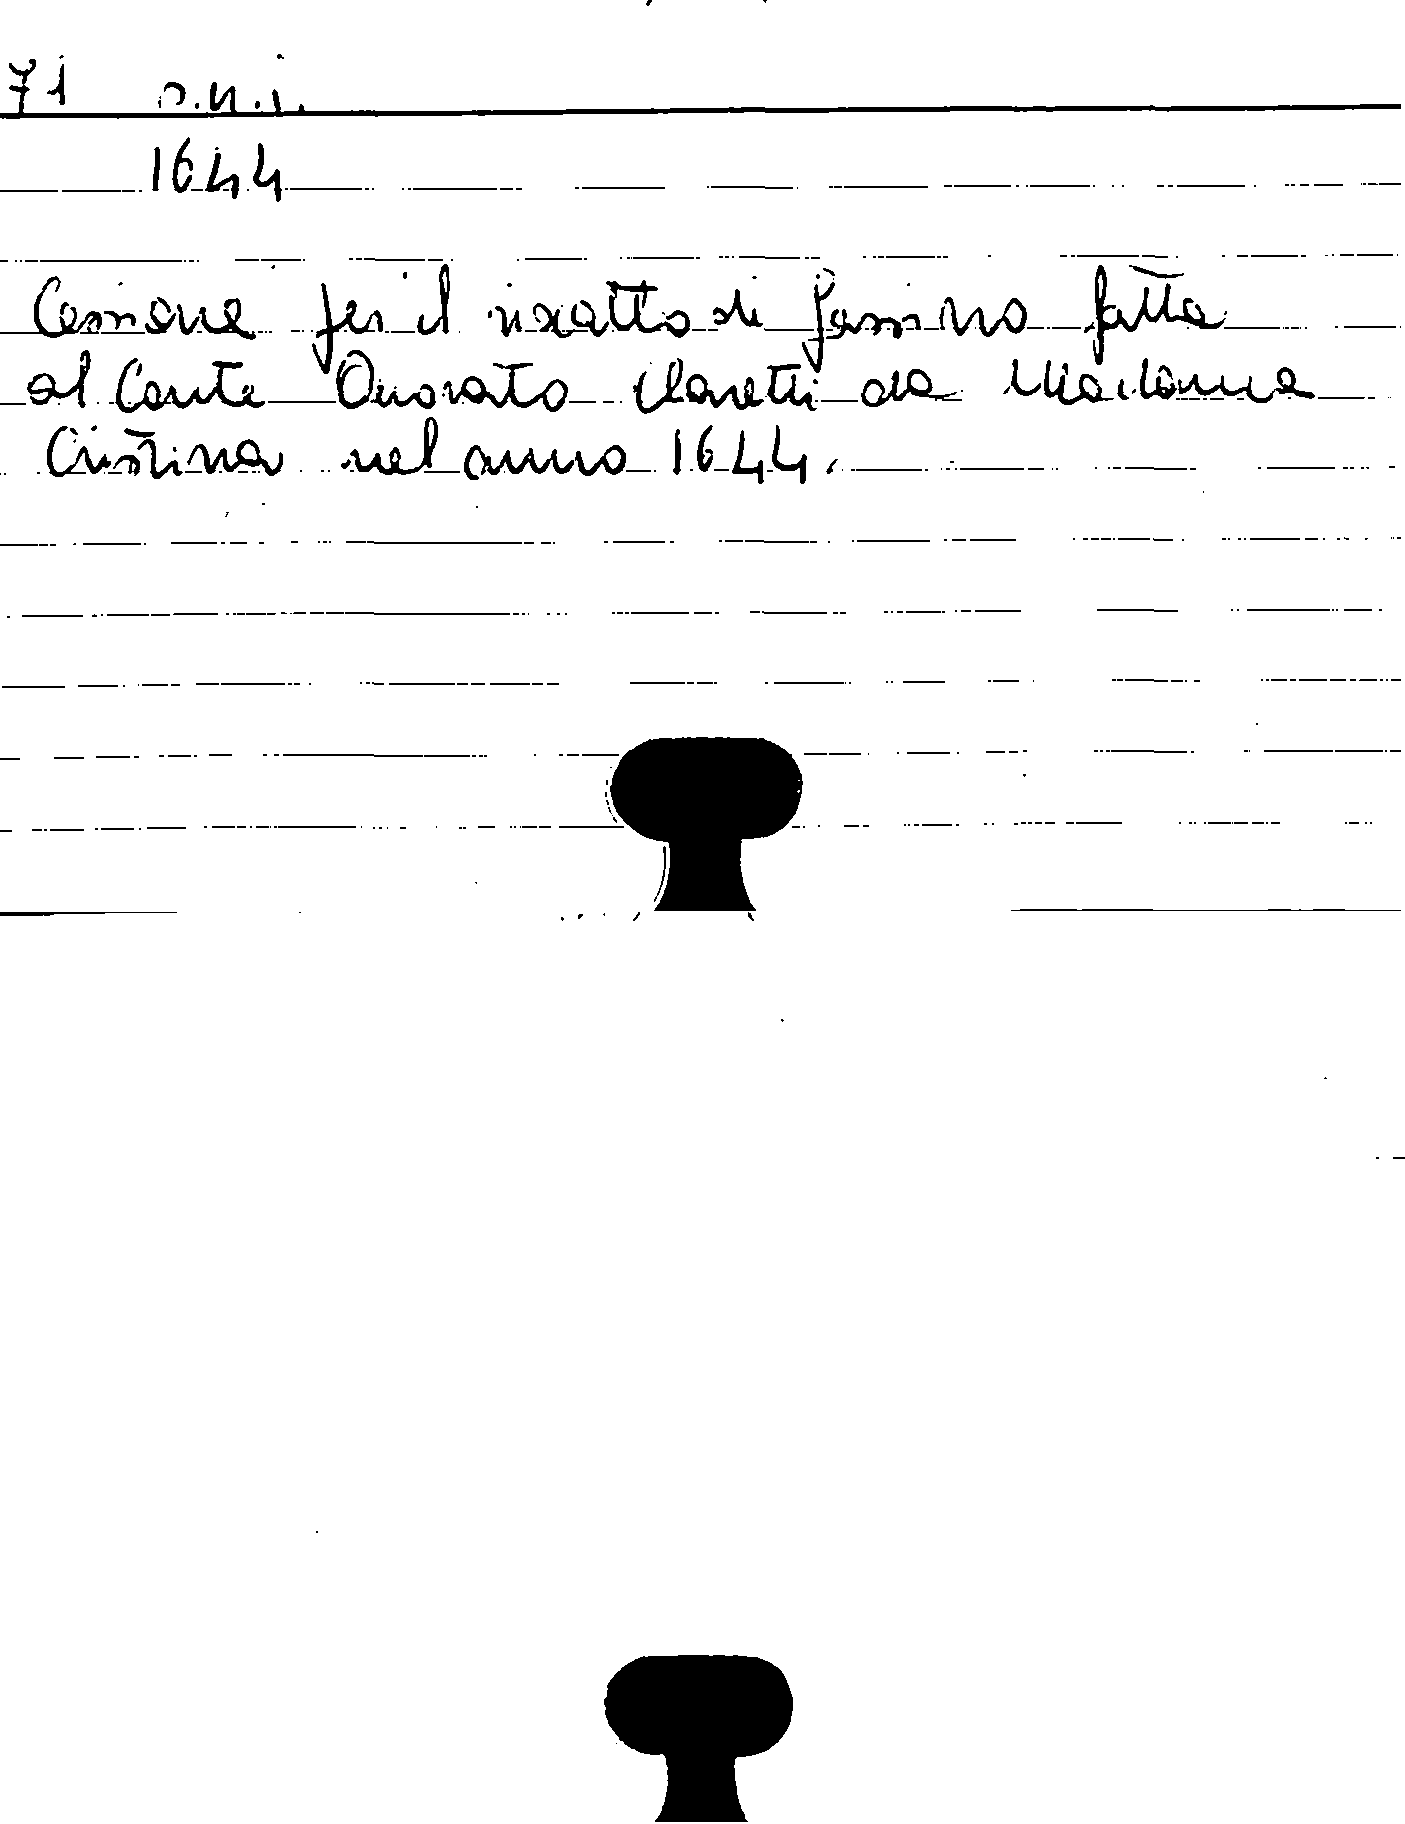 71 s.n.i.
1644
Cessione per il riscatto di Gassino fatta
al Conte Onorato Claretti da Madama
Cristina nel anno 1644.